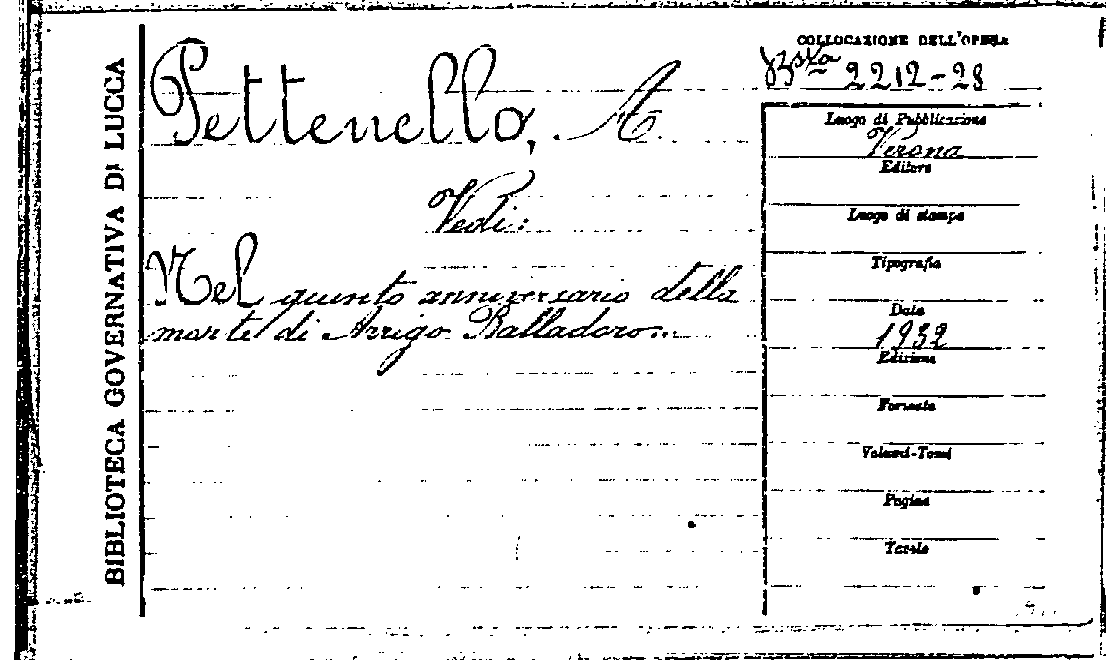 BIBLIOTECA GOVERNATIVA DI LUCCA
Pettenello, A.
Vedi:
Nel quinto anniversario della
morte di Arrigo Balladoro...
COLLOCAZIONE DELL'OPERA
Bsta 2212-28
Luogo di Pubblicazione
Verona
Editore
Luogo di stampa
Tipografia
Data
1932
Edizione
Formato
Volumi-Tomi
Pagine
Tavole